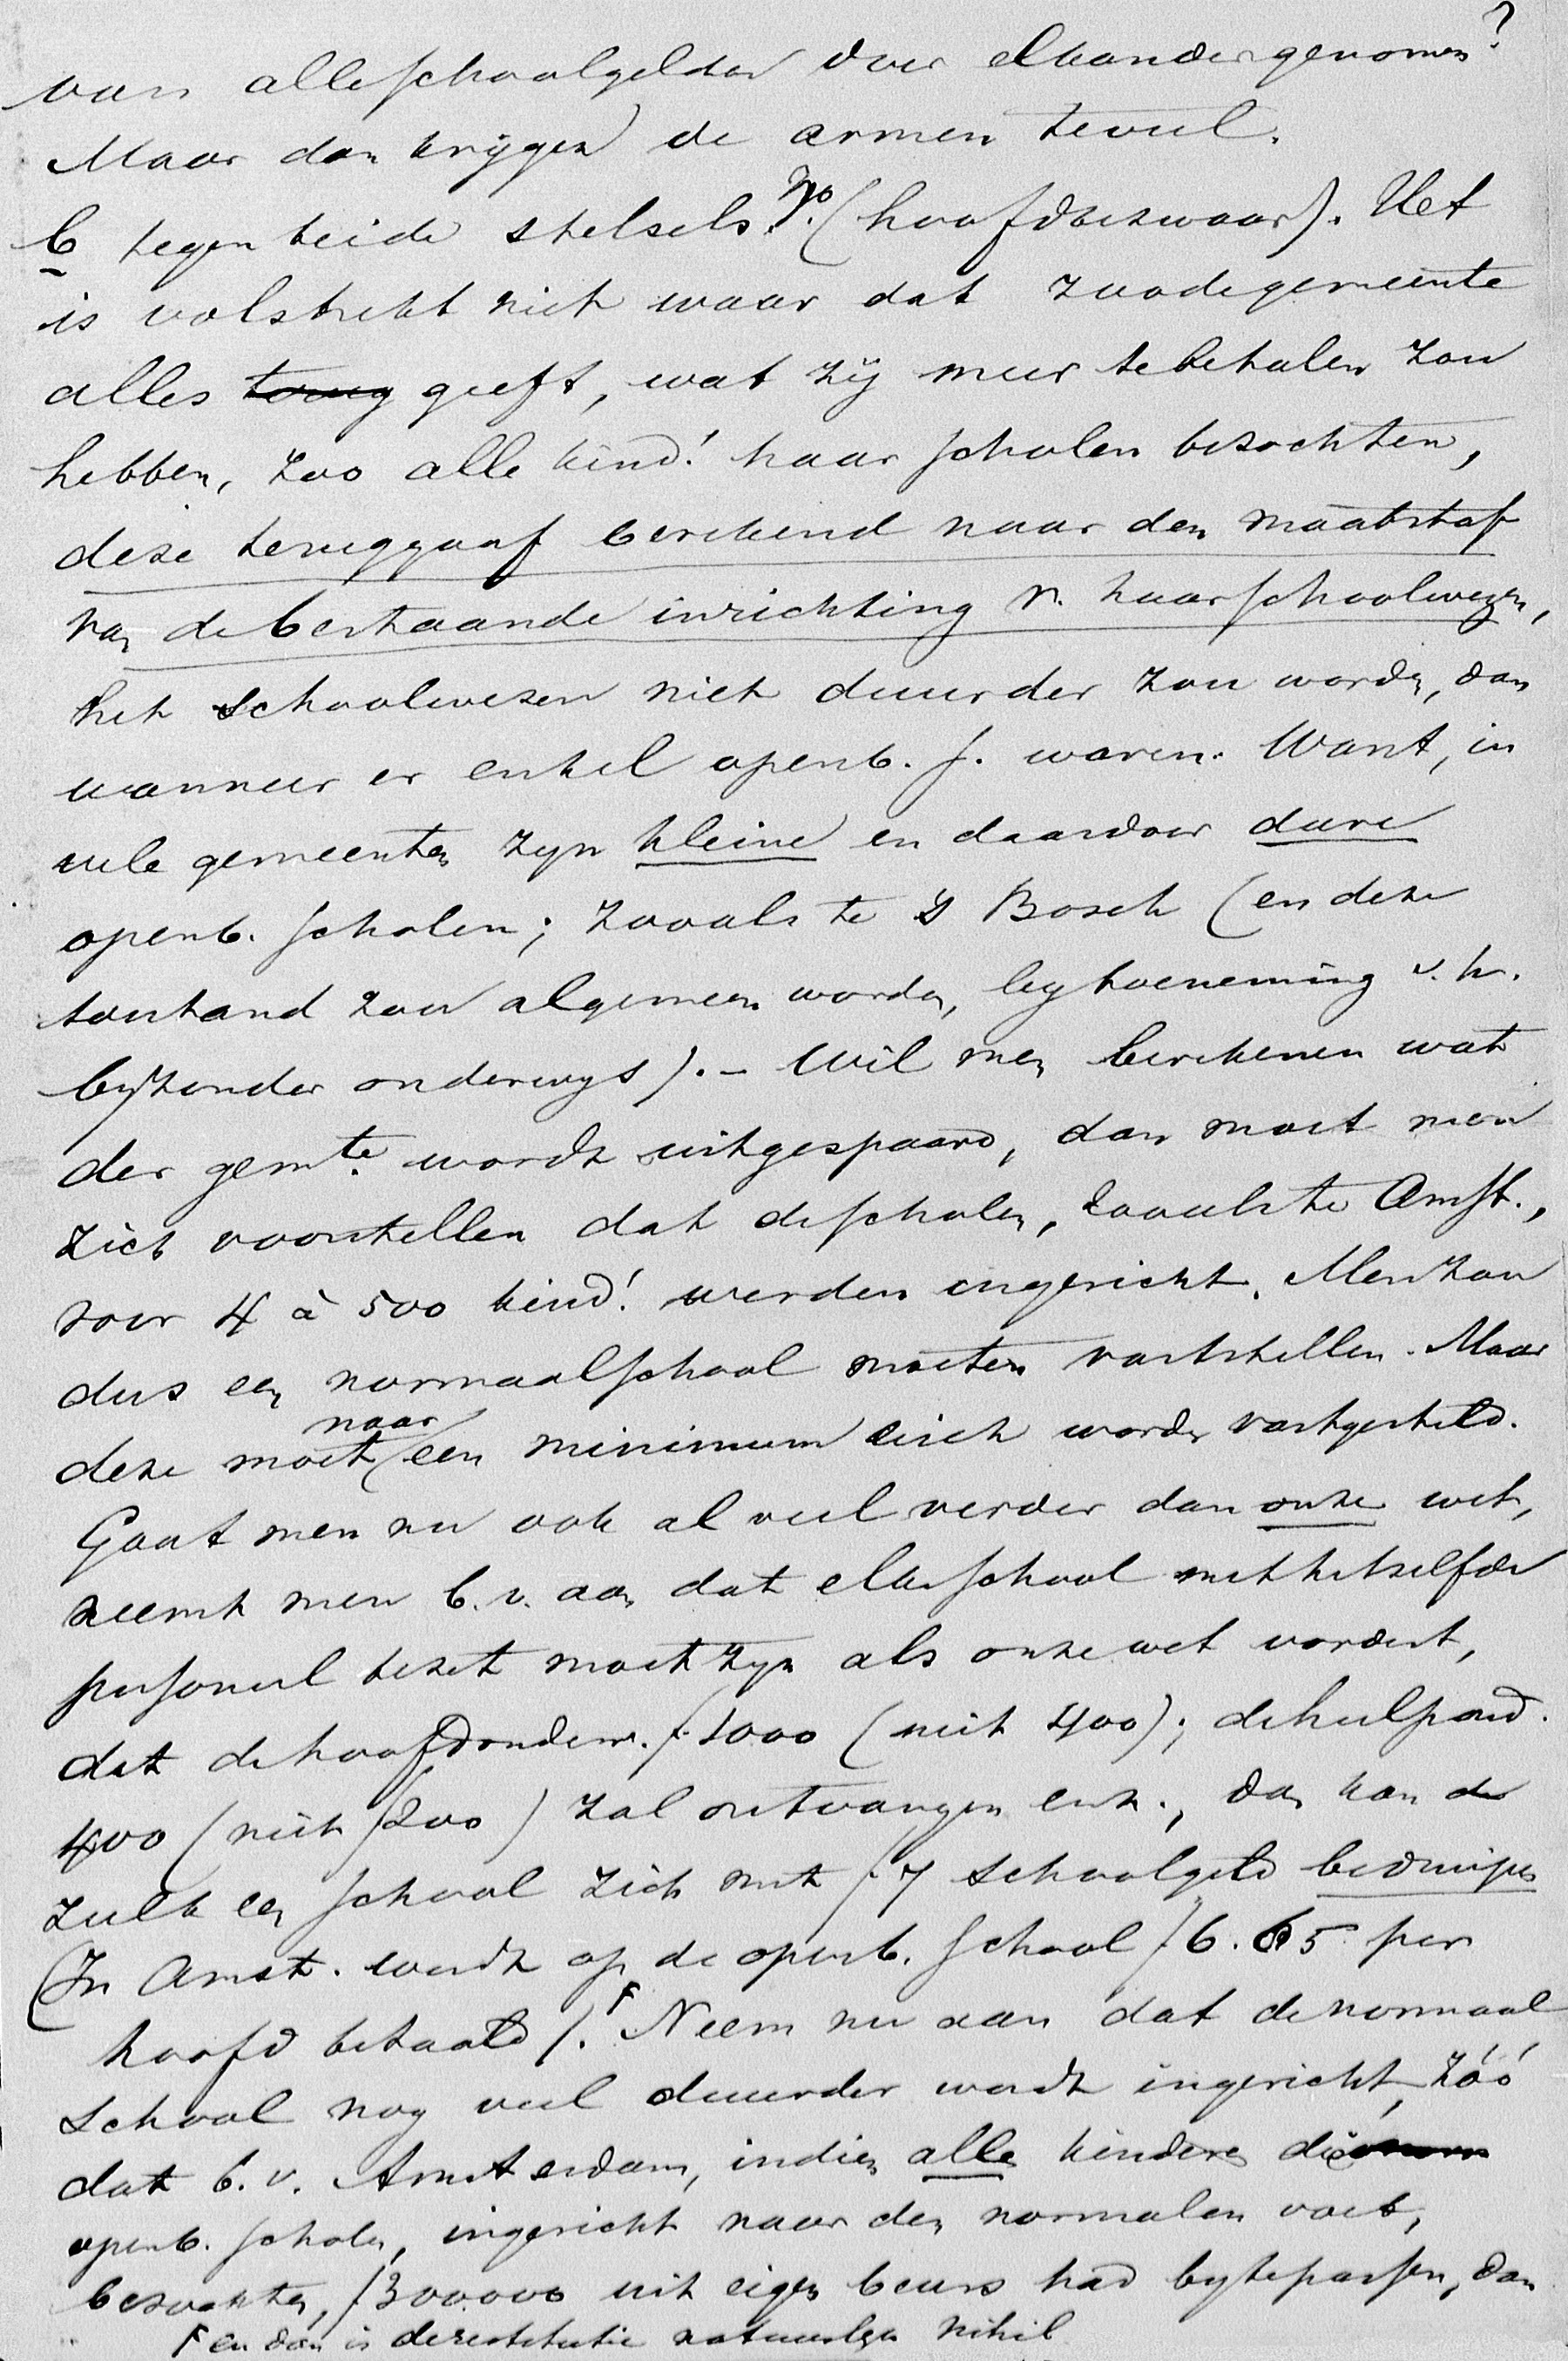 van alle schoolgelden door elkander genomen?
Maar dan krijgen de armen te veel.
C tegen beide stelsels. (hoofdbezwaar). Het
is volstrekt niet waar dat zoo de gemeente
alles terug geeft, wat zij meer te betalen zou
hebben, zoo alle kind! haar scholen bezochten,
deze teruggaaf berekend naar den maatstaf
van de bestaande inrichting v. haar schoolwezen,
het schoolwezen niet duurder zou worden, dan
wanneer er enkel openb. s. waren. Want, in
vele gemeenten zyn kleine en daardoor dure
openb. scholen; zooals te 's Bosch (en deze
toestand zou algemeen worden, by toeneming v. h.
byzonder onderwys). – Wil men berekenen wat
der gemte. wordt uitgespaard, dan moet men
zich voorstellen dat de scholen, zooals te Amst.,
voor 4 à 500 kind! werden ingericht. Men zou
dus een normaalschool moeten vaststellen. Maar
deze moet naar een minimum eisch worden vastgesteld.
Gaat men nu ook al veel verder dan onze wet,
neemt men b.v. aan dat elke school met hetzelfde
personeel bezet moet zyn als onze wet vordert,
dat de hoofdonderw. f 1000 (niet 400); de hulpond.
400 (niet f 200) zal ontvangen enz., dan kan de
zulk een school zich met f 7 schoolgeld bedruipen
(In Amst. wordt op de openb. school f 6.65 per
hoofd betaald). F Neem nu aan dat de normaal
school nog veel duurder wordt ingericht, zóó
dat b.v. Amsterdam, indien alle kinderen die
openb. scholen, ingericht naar den normalen voet,
bezochten, f 300.000 uit eigen beurs had by te passen, dan
F en dan is de restitutie natuurlyk nihil